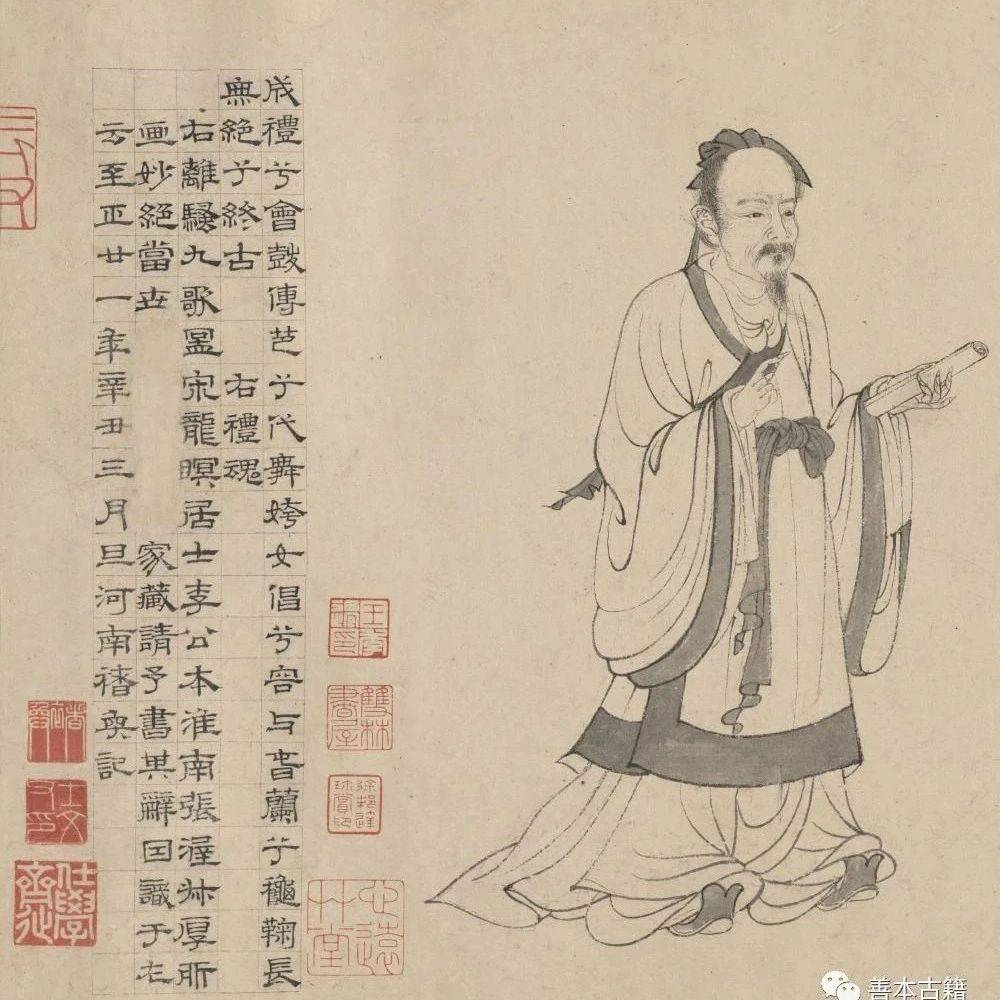 成禮兮會鼓傳芭兮代舞姱女倡兮容与春蘭兮龝鞠長
無絶兮終古 右禮魂
右離騷九歌啚宋龍暝居士李公本淮南張渥尗厚所
画妙絶當世 家藏請予書其辭因識于左
云至正廿一年辛丑三月旦河南褚奐記
雙林書屋
徐邦達珍賞印
善本古籍